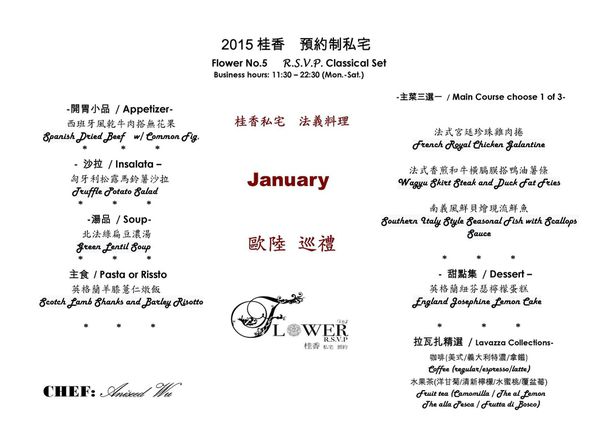 2015 桂香　預約制私宅
Flower No.5 R.S.V.P. Classical Set
Business hours: 11:30 – 22:30 (Mon.-Sat.)
-開胃小品 / Appetizer-
西班牙風乾牛肉搭無花果
Spanish Dried Beef w/ Common Fig.
* * *
- 沙拉 / Insalata –
匈牙利松露馬鈴薯沙拉
Truffle Potato Salad
* * *
-湯品 / Soup-
北法綠扁豆濃湯
Green Lentil Soup
* * *
主食 / Pasta or Rissto
英格蘭羊膝薏仁燉飯
Scotch Lamb Shanks and Barley Risotto
* * *
CHEF: Aniseed Wu
桂香私宅　法義料理
January
歐陸 巡禮
FLOWER
R.S.V.P
桂香 私宅 預約
-主菜三選一 / Main Course choose 1 of 3-
法式宮廷珍珠雞肉捲
French Royal Chicken Galantine
法式香煎和牛橫膈膜搭鴨油薯條
Wagyu Skirt Steak and Duck Fat Fries
南義風鮮貝燴現流鮮魚
Southern Italy Style Seasonal Fish with Scallops
Sauce
* * *
- 甜點集 / Dessert –
英格蘭紐芬瑟檸檬蛋糕
England Josephine Lemon Cake
* * *
拉瓦扎精選 / Lavazza Collections-
咖啡(美式/義大利特濃/拿鐵)
Coffee (regular/espresso/latte)
水果茶(洋甘菊/清新檸檬/水蜜桃/覆盆莓)
Fruit tea (Camomilla / The al Lemon
The alla Pesca / Frutta di Bosco)